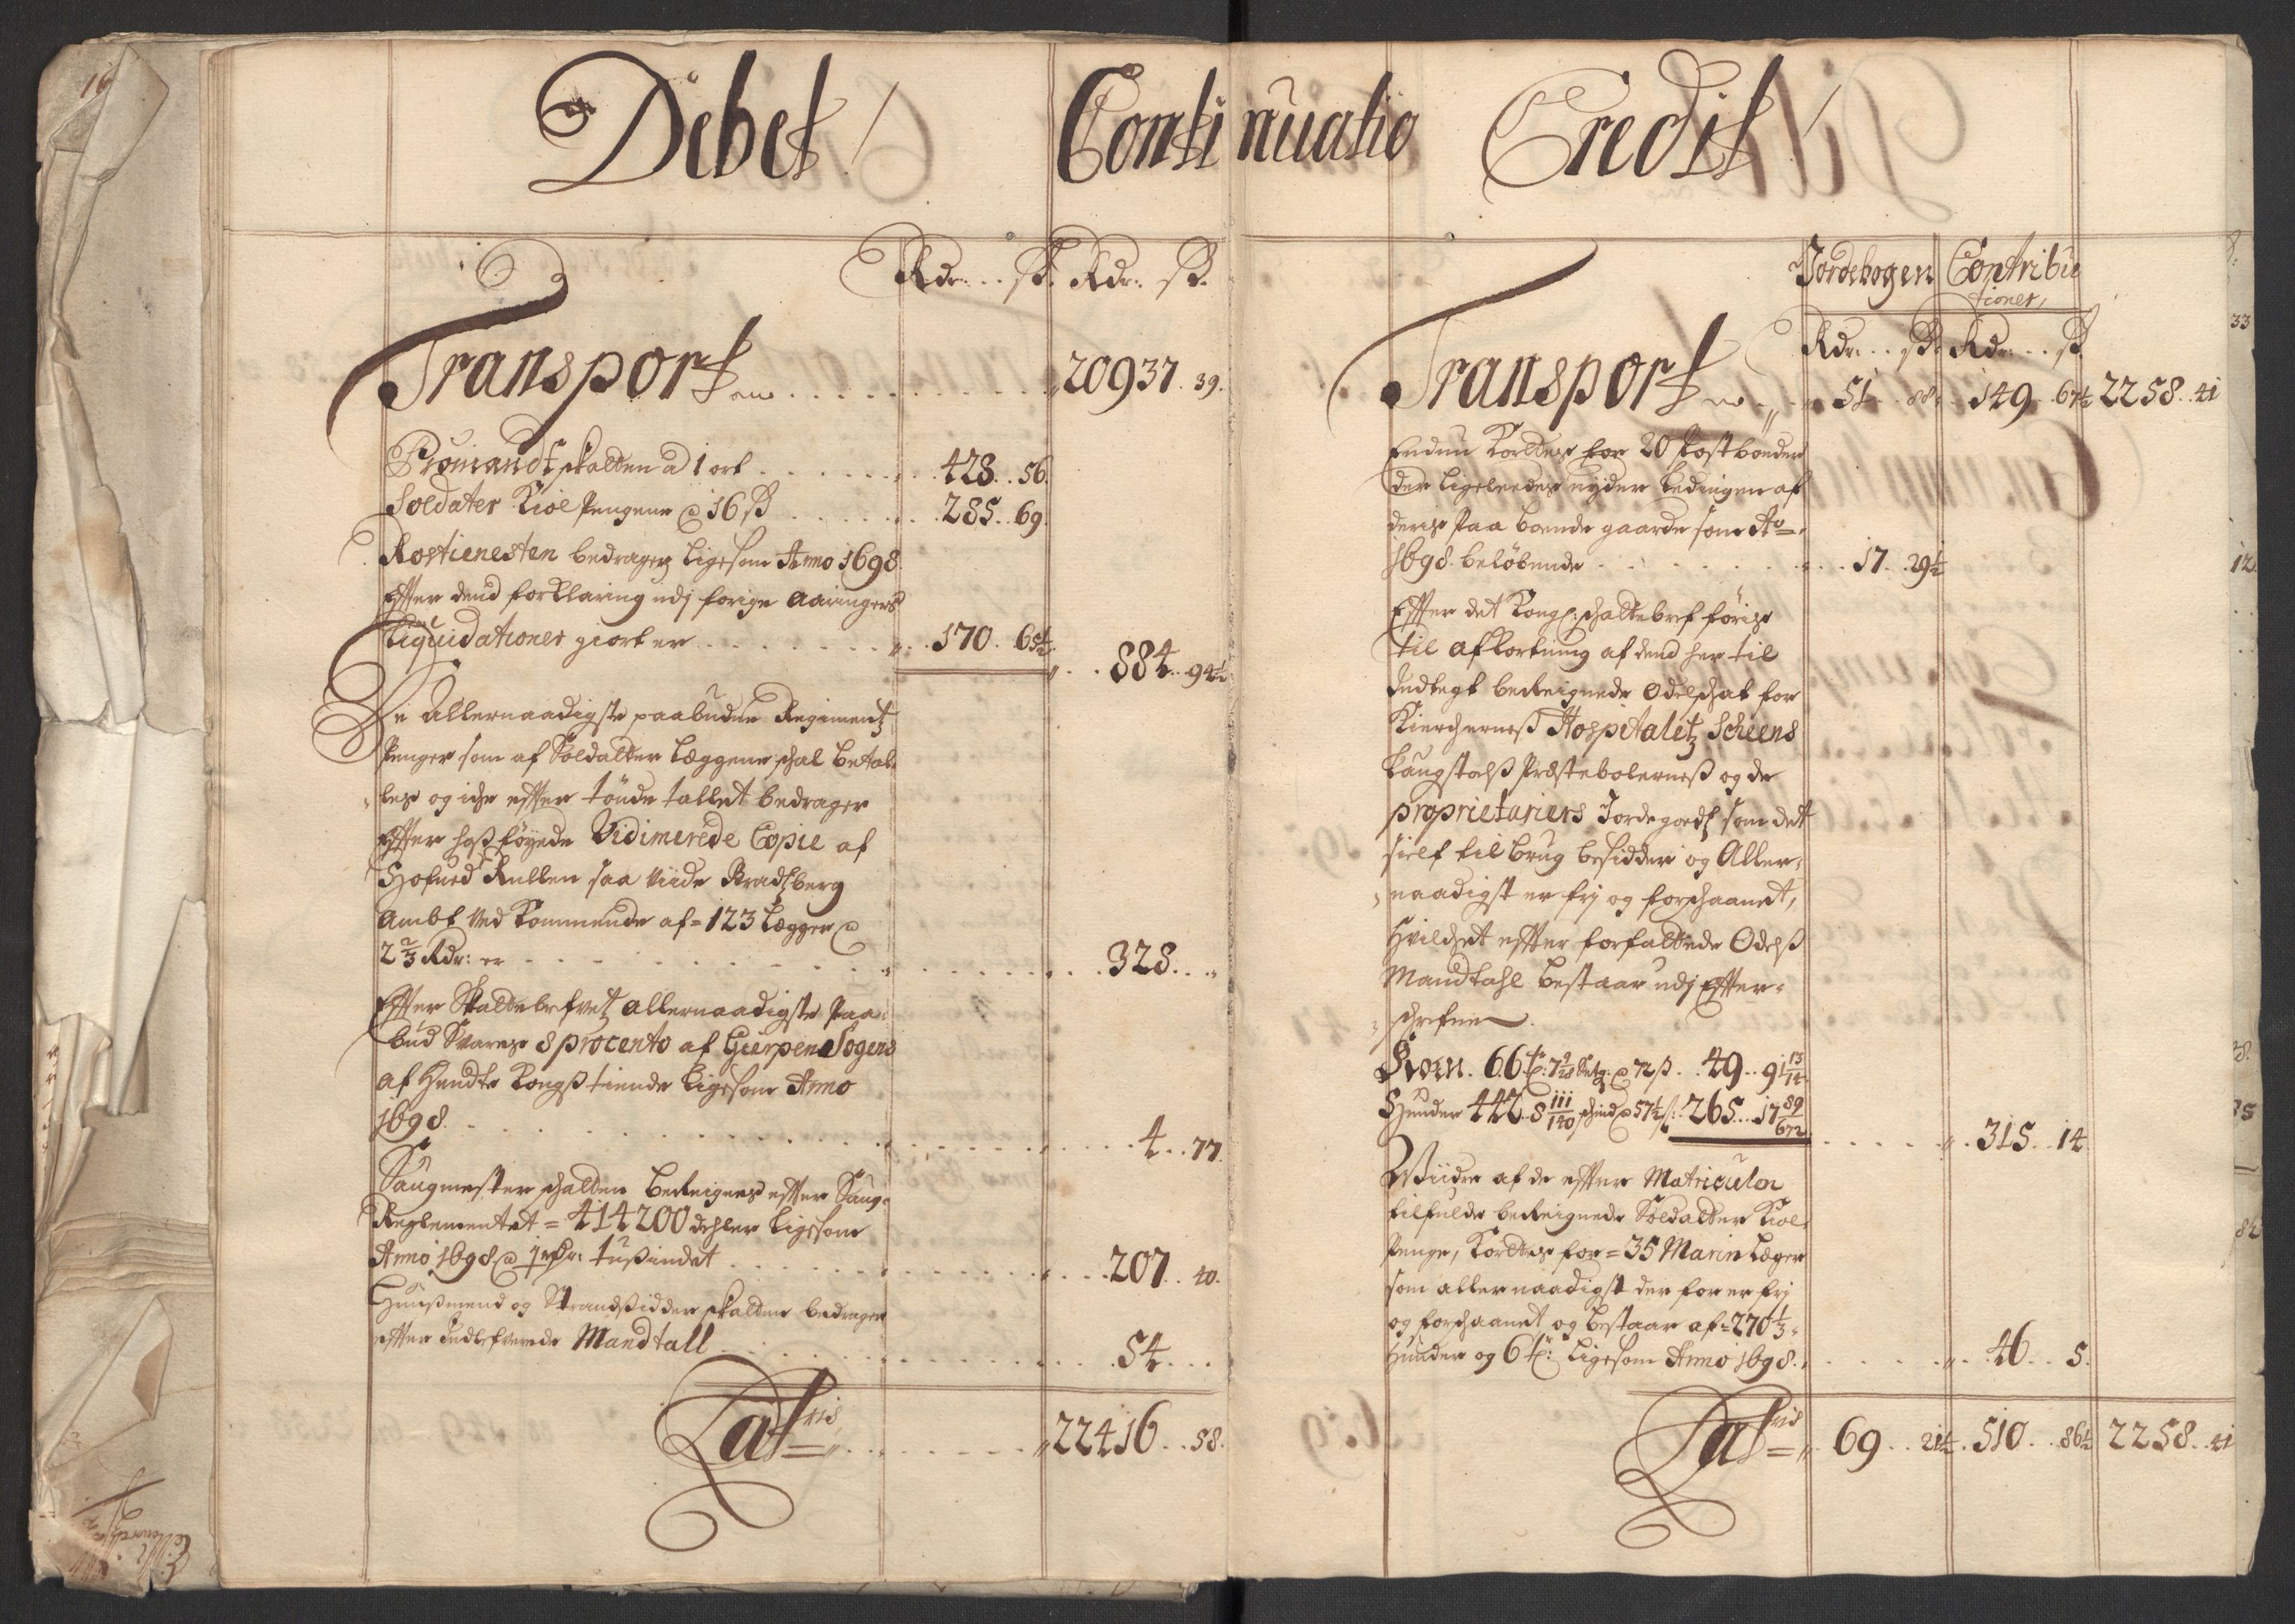 Debet /
Continuatio
Credit /
Rdr: ß. Rdr: ß.
Transporten 20937. 39.
Proviandtskatten a 1 ort 428. 56.
Soldater Kiole Pengene @ 16 ß 285. 69.
Rostienesten bedrager ligesom Anno 1698.
Effter dend forklaring udj forige aaringers
Liquidationer giort er 170. 65½
884. 94½
De Allernaadigste paabudne Regimentz
Penger som af Soldatter Læggene schal betal-
les og iche effter tønde tallet bedrager
Effter hoßføyede Vidimerede Copie af
Hofued Rullen saa Viide Bradtzberg
Ambt Ved kommende af= 123 Lægger @
2⅔ Rdr: er 328.
Effter Skattebrefvetz allernaadigste Paa-
bud Svares 8 procento af Gierpen Sogens
af hendte Kongß tiende ligesom Anno
1698. 4. 77.
Saugmester schatten bereignes effter Saug-
Reglementet = 414200 dehler ligesom
Anno 1698 @ ½ rdr: tußindet 207. 40.
Huußmend og Strandsidder skatten bedrager
effter Indlefverede Mandtall 54.
Lat=ris 22416. 58.
Jordebogen Contribu
tioner,
Rdr: ß. Rdr: ß
Transporten 51. 88. 149. 67½ 2258. 41
Endnu kortes for 20 Postbønder
der ligeledes nyder ledingen af
deris Paa boende gaarde som Ao=
1698. beløbende 17. 29½
Effter det Kongl: schattebref føris
til afkortning af dend her til
Indtegt bereignede Odelschat for
Kircherneß Hospitaletz Scheens
Laugstolß Præstebolerneß og de
proprietariers Jordegodtz som det
sielf til brug besidder og Aller-
naadigst er frj og forschaanet,
hvilchet effter forfattede Odelß
Mandtahl bestaar udj Effter-
schrefne.
Korn. 66 tr: 7 9/28 Setg: @ 72 ß. 49. 91 13/14
Hunder 442. 8 111/140 schind @ 57½ ß: 265. 17 89/672
315. 14
Wiidre af de effter Matriculen
tilfulde bereignede Soldatter Kiole
Penge, kortes for= 35 Marin Læger
som allernaadigst der for er frj
og forschaanet og bestaar af= 270⅓
Hunder og 6 tr: ligesom Anno 1698. 46. 5.
Lat=ris 69. 21½. 510. 86½ 2258. 41